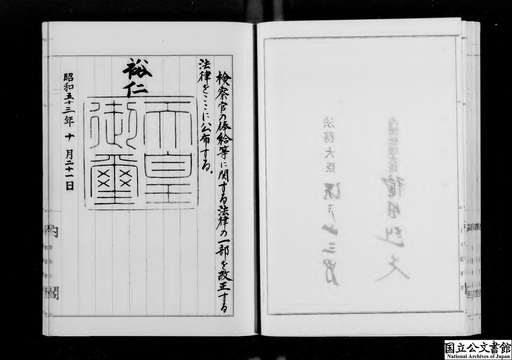 検察官の俸給等に関する法律の一部を改正する
法律をここに公布する。
裕仁
天皇
御璽
昭和五十三年十月二十一日
内閣
法務大臣
国立公文書館
National Archives of Japan